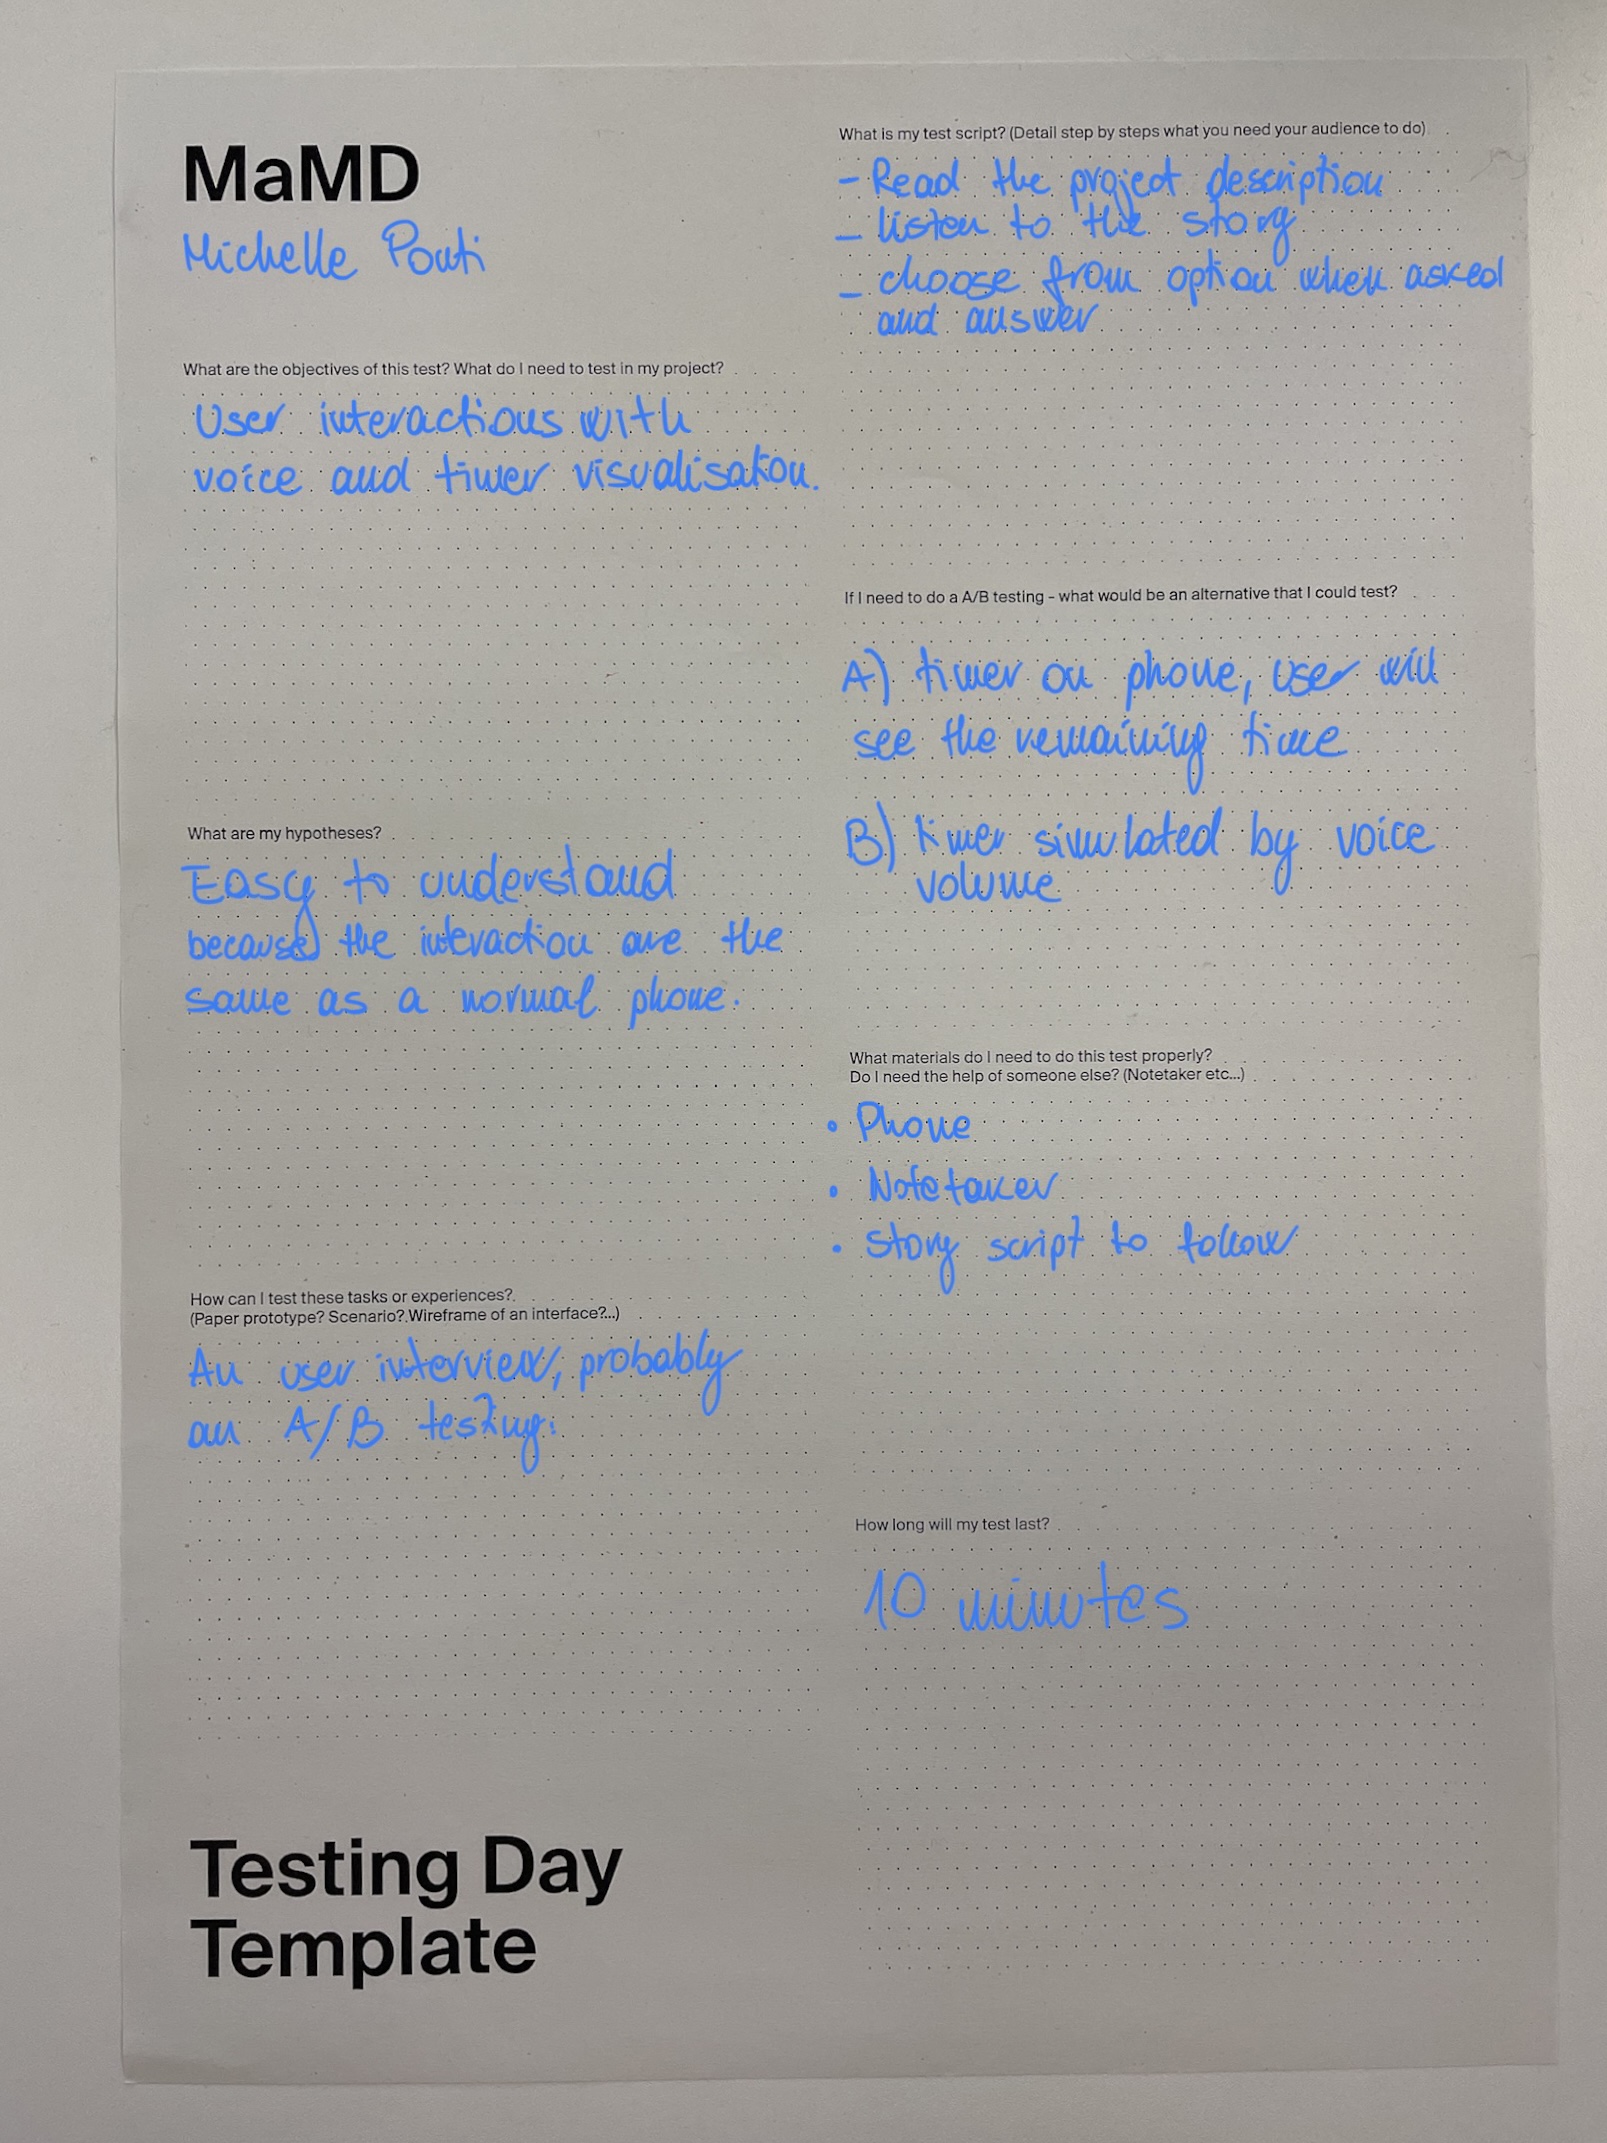 MaMD
Michelle Ponti
What are the objectives of this test? What do I need to test in my project?
User interactions with
voice and timer visualisation.
What are my hypotheses?
Easy to understand
because the interaction are the
same as a normal phone.
How can I test these tasks or experiences?
(Paper prototype? Scenario? Wireframe of an interface?...)
An user interview, probably
an A/B testing.
Testing Day
Template
What is my test script? (Detail step by steps what you need your audience to do)
- Read the project description
- listen to the story
- choose from option when asked
and answer
If I need to do a A/B testing - what would be an alternative that I could test?
A) timer on phone, user will
see the remaining time
B) timer simulated by voice
volume
What materials do I need to do this test properly?
Do I need the help of someone else? (Notetaker etc...)
• Phone
• Notetaker
• Story script to follow
How long will my test last?
10 minutes